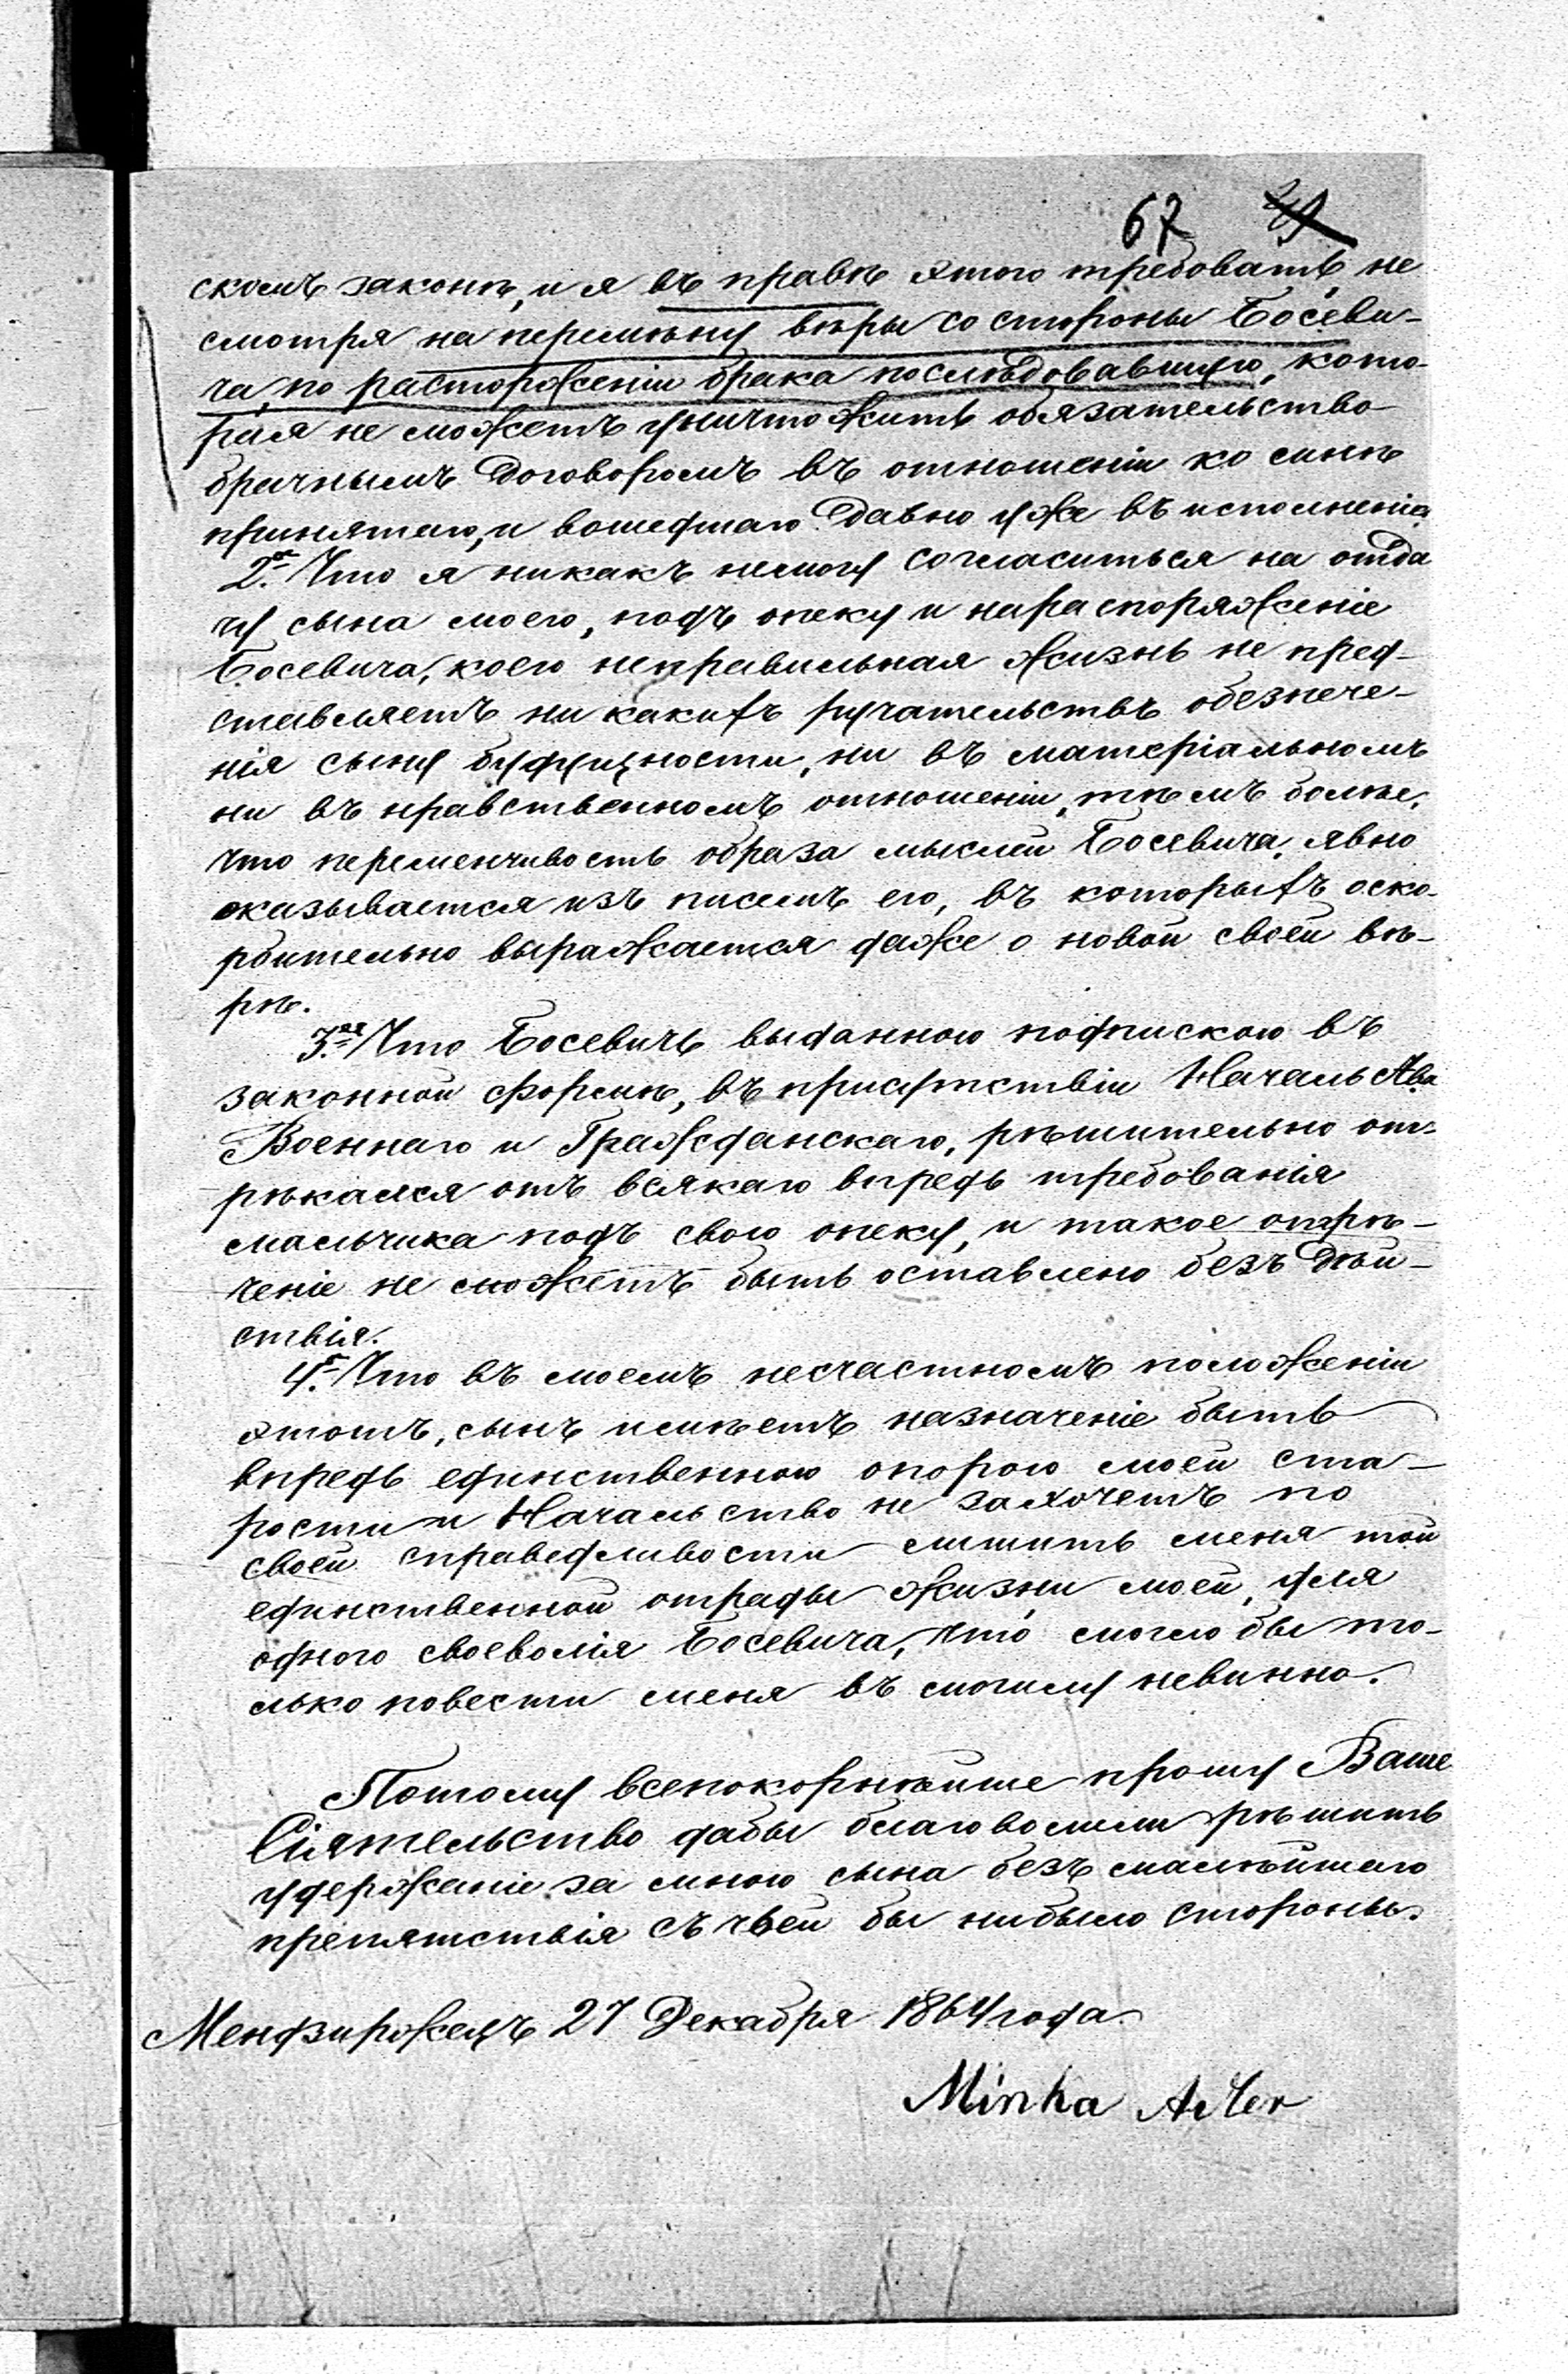 67
скомъ законѣ, и я въ правѣ этого требовать, не
смотря на перемѣну вѣры со стороны Босеви-
ча, по расторженіи брака послѣдовавшую, кото-
рая не можетъ уничтожить обязательство
брачнымъ договоромъ въ отношеніи ко мнѣ
принятаго, и вошедшаго давно уже въ исполненіе
2е. Что я никакъ немогу согласиться на отда
чу сына моего, подъ опеку и нараспоряженіе
Босевича, коего неправильная жизнь не пред-
ставляетъ ни какихъ ручательствъ обезпече-
нія сыну будущности, ни въ матеріальномъ
ни въ нравственномъ отношеніи, тѣмъ болѣе,
что переменчивость образа мыслей Босевича, явно
оказывается изъ писемъ его, въ которыхъ оско-
рбительно выражается даже о новой своей вѣ-
рѣ.
3ея Что Босевичъ выданною подпискою въ
законной формѣ, въ присутствіи Начальства
Военнаго и Гражданскаго, рѣшительно от-
рѣкался отъ всякаго впредь требованія
мальчика подъ свою опеку, и такое отрѣ-
ченіе не можетъ быть оставлено безъ дѣй-
ствія.
4е. Что въ моемъ несчастномъ положеніи
этотъ, сынъ имѣетъ назначеніе быть
впредь единственною опорою моей ста-
рости и Начальство не захочетъ по
своей справедливости лишить меня той
единственной отрады жизни моей, для
одного своеволія Босевича, что могло бы то-
лько повести меня въ могилу невинно.
Потому всепокорнѣйше прошу Ваше
Сіятельство дабы благоволили рѣшить
удержаніе за мною сына безъ малѣйшаго
препятствія съ чьей бы нибыло стороны.
Мендзиржецъ 27 Декабря 1864 года.
Minka Adler